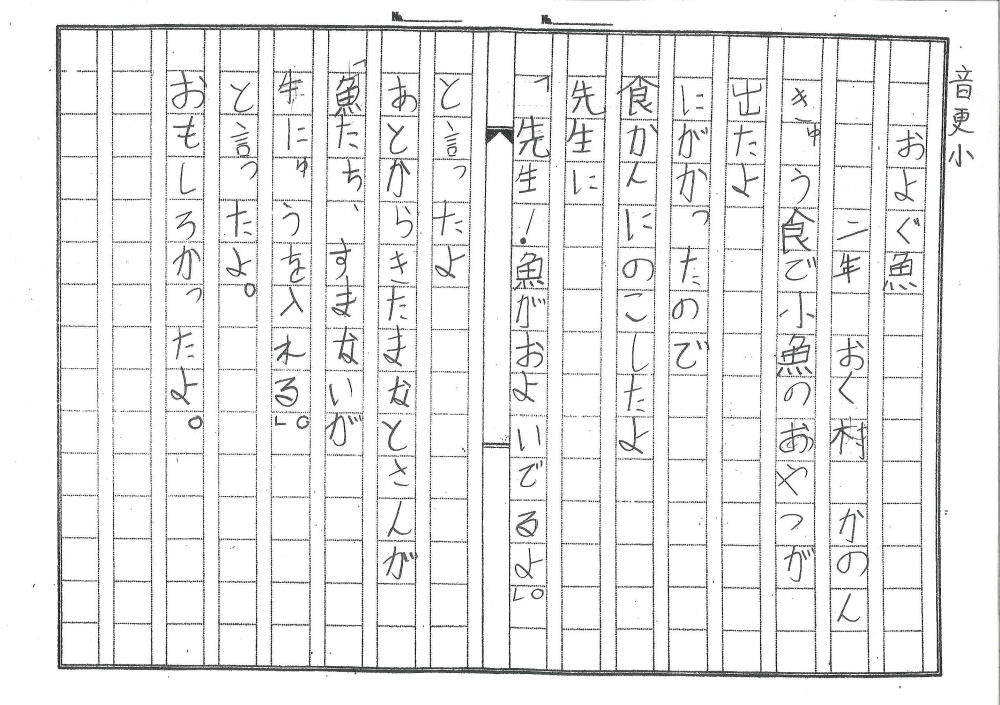 音更小
№
№
およぐ魚
二年 おく村 かのん
きゅう食で小魚のおやつが
出たよ
にがかったので
食かんにのこしたよ
先生に
「先生!魚がおよいでるよ。」
と言ったよ
あとからきたまなとさんが
「魚たち、すまないが
牛にゅうを入れる。」
と言ったよ。
おもしろかったよ。